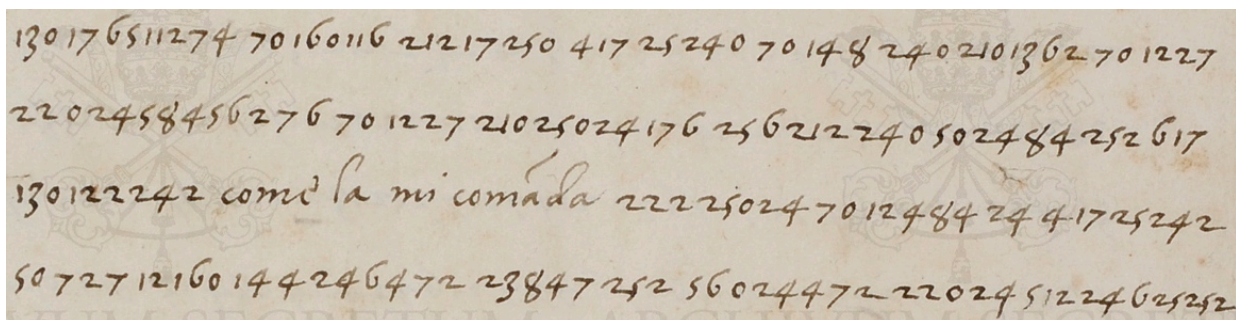 130176511274 70160116 21217250 417 25240 70 148 2402101362 70 1227
2202458456276 70 1227 21025024176 25621224050248425 2617
130122242 come la mi comāda 22225024 70 12484 24 417 25242
50 727 12160 144246472 23847252 560244472 22024512246 25252